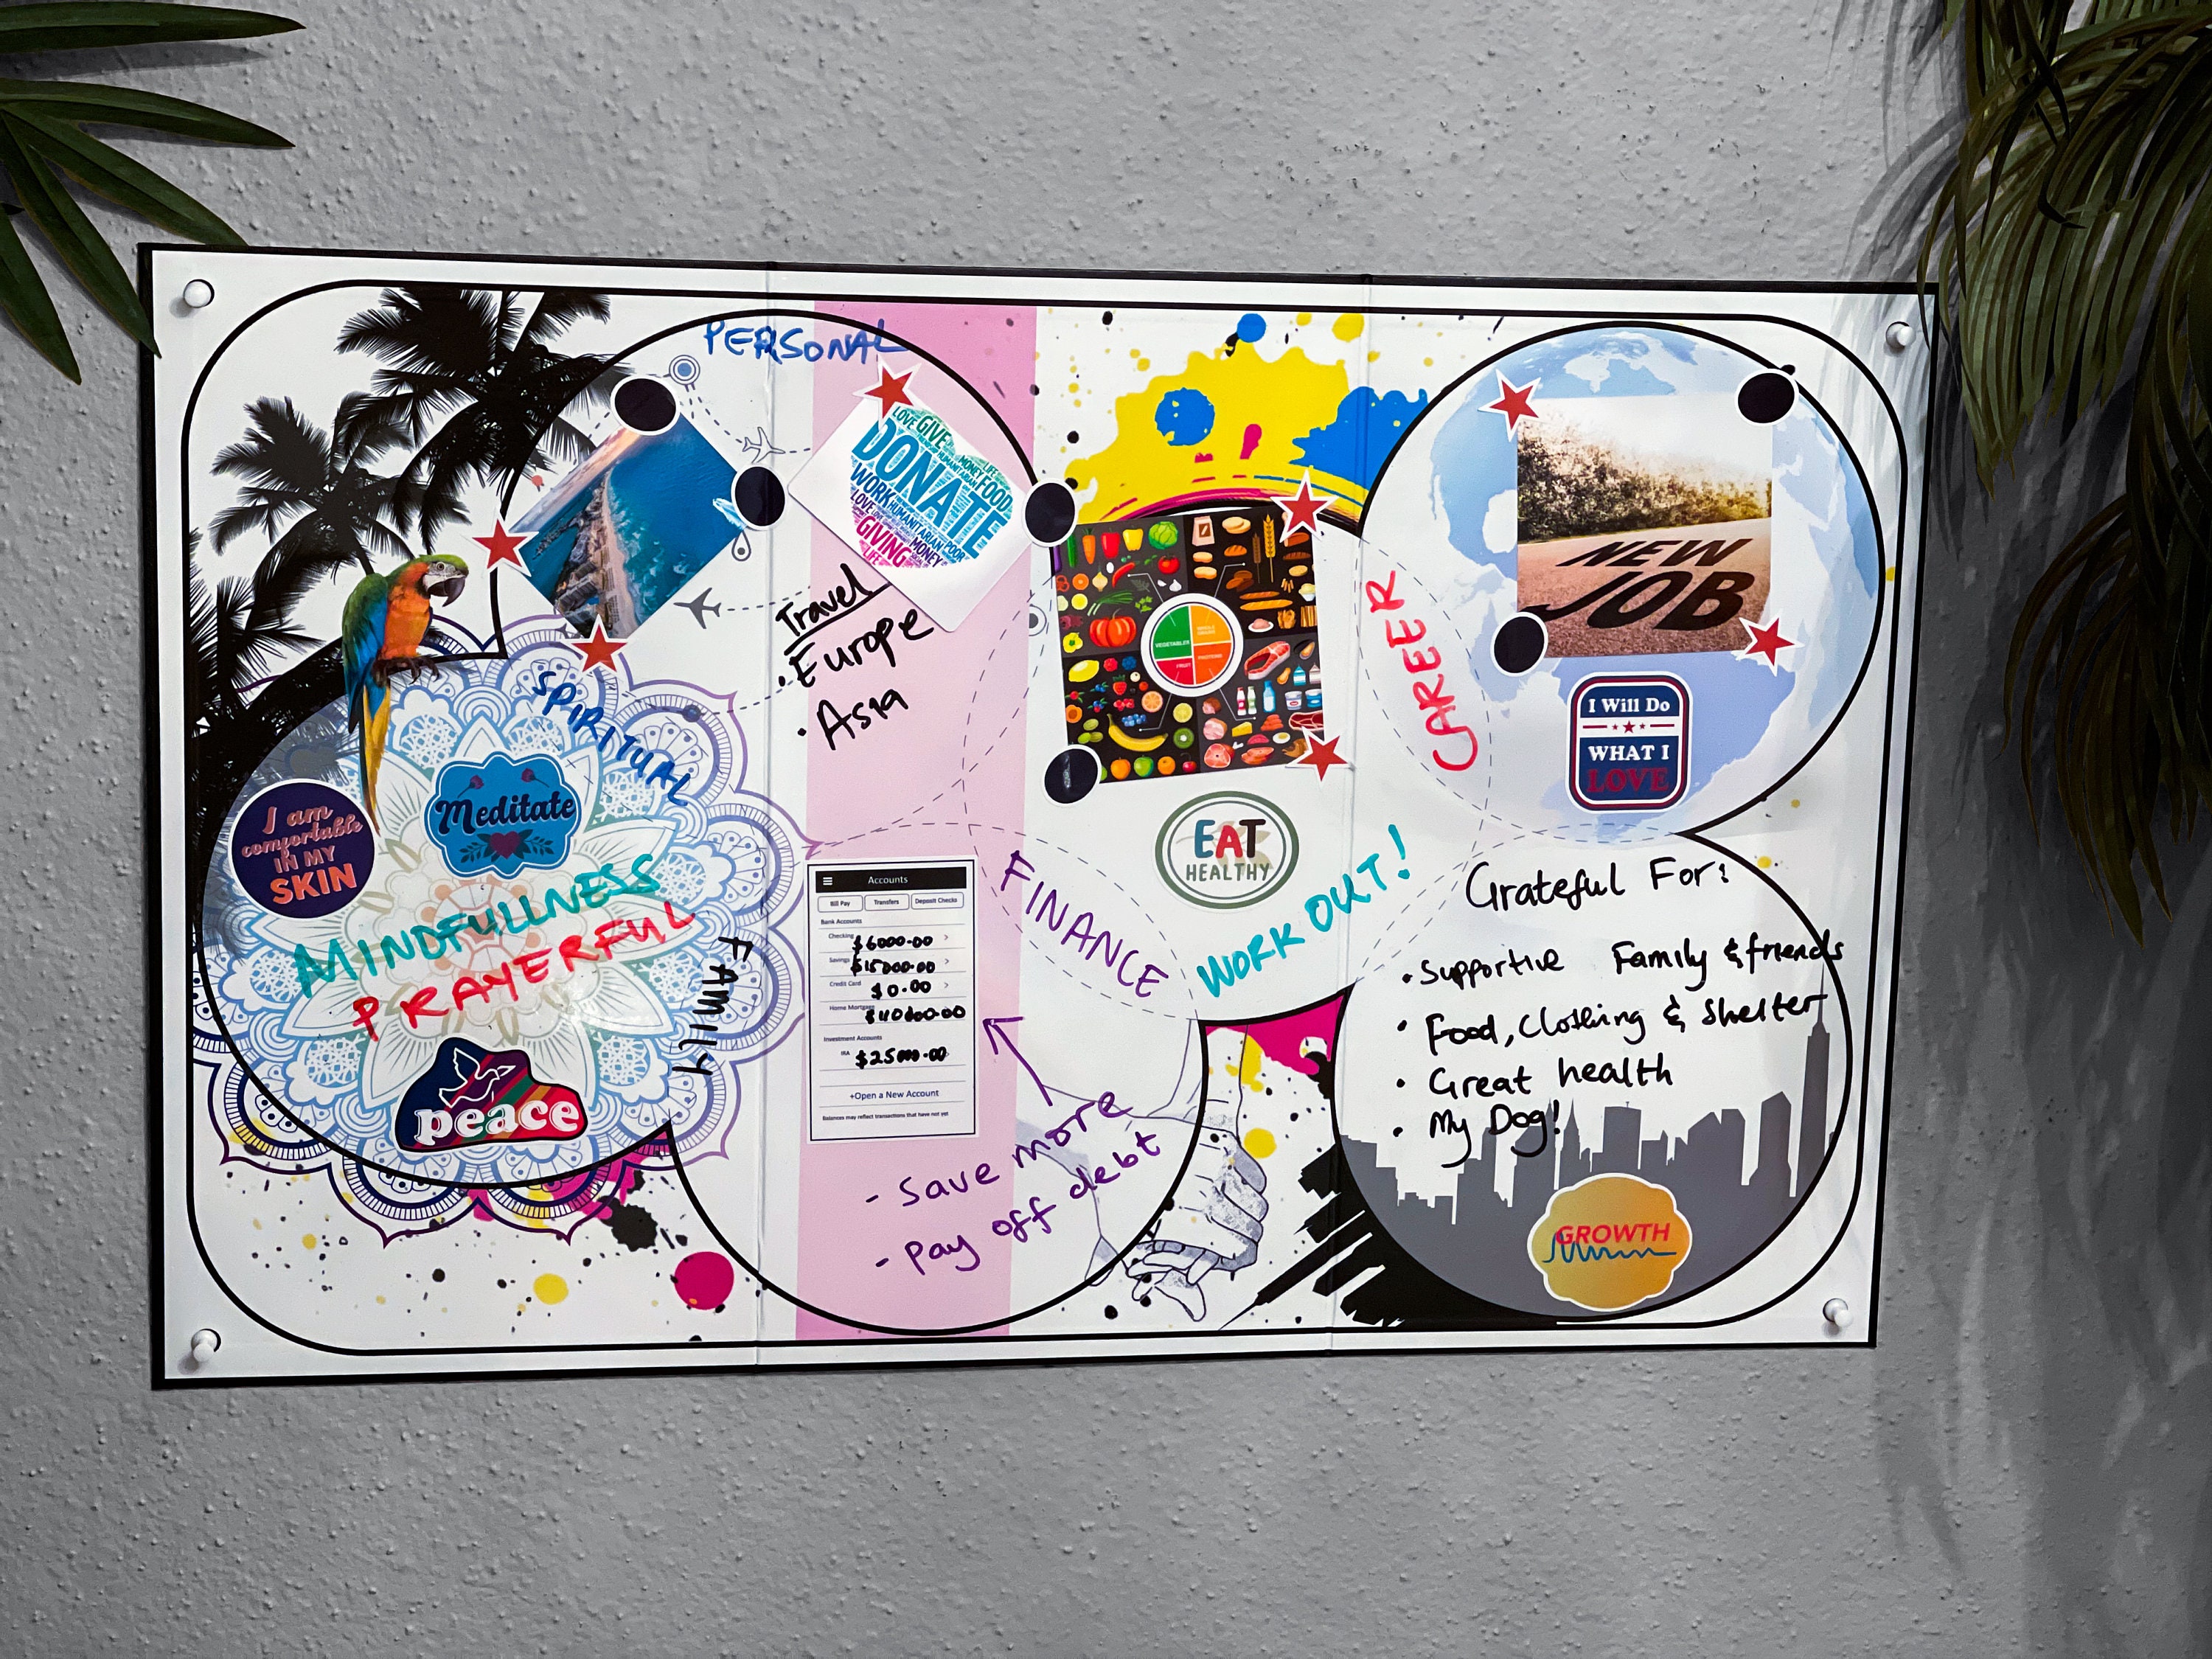 PERSONAL
LOVE GIVE
DONATE
FOOD
WORK HUMANITARIAN
LOVE
MONEY
GIVING
LIFE
Travel
• Europe
• Asia
SPIRITUAL
I am
comfortable
IN MY
SKIN
Meditate
MINDFULLNESS
PRAYERFUL
FAMILY
peace
Accounts
Bill Pay
Transfers
Deposit Checks
Bank Accounts
Checking
$6000.00
Savings
$15000.00
Credit Card
$0.00
Home Mortgage
$110000.00
Investment Accounts
IRA
$25000.00
+Open a New Account
Balances may reflect transactions that have not yet
FINANCE
- Save more
- Pay off debt
VEGETABLES
FRUIT
PROTEINS
EAT
HEALTHY
WORK OUT!
CAREER
NEW
JOB
I Will Do
WHAT I
LOVE
Grateful For:
• Supportive Family & friends
• Food, Clothing & Shelter
• Great health
• My Dog!
GROWTH